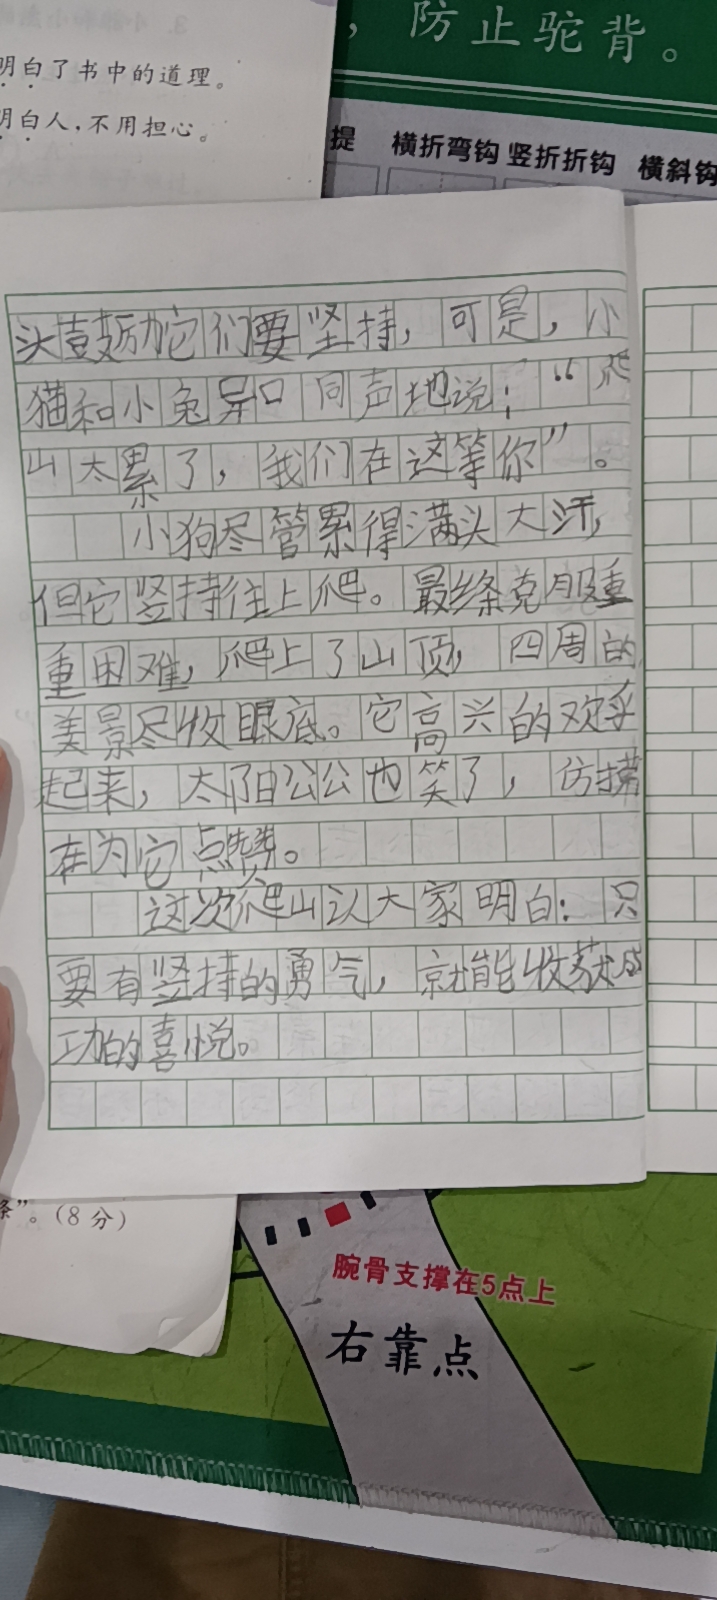 ，防止驼背。
明白了书中的道理。
明白人，不用担心。
提 横折弯钩 竖折折钩 横斜钩
头鼓励它们要坚持，可是，小
猫和小兔异口同声地说：“爬
山太累了，我们在这等你”。
小狗尽管累得满头大汗，
但它坚持往上爬。最终克服重
重困难，爬上了山顶，四周的
美景尽收眼底。它高兴的欢乎
起来，太阳公公也笑了，仿拂
在为它点赞。
这次爬山认大家明白：只
要有坚持的勇气，就能收获成
功的喜悦。
条”。(8分)
腕骨支撑在5点上
右靠点